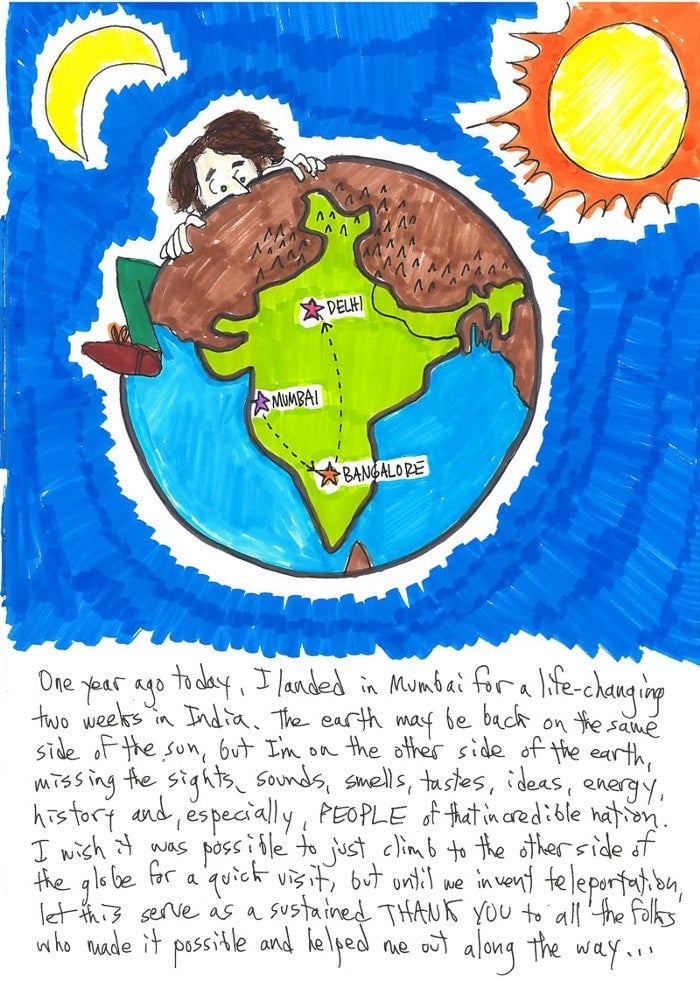 DELHI
MUMBAI
BANGALORE
One year ago today, I landed in Mumbai for a life-changing
two weeks in India. The earth may be back on the same
side of the sun, but I'm on the other side of the earth,
missing the sights, sounds, smells, tastes, ideas, energy,
history and, especially, PEOPLE of that incredible nation.
I wish it was possible to just climb to the other side of
the globe for a quick visit, but until we invent teleportation,
let this serve as a sustained THANK YOU to all the folks
who made it possible and helped me out along the way...